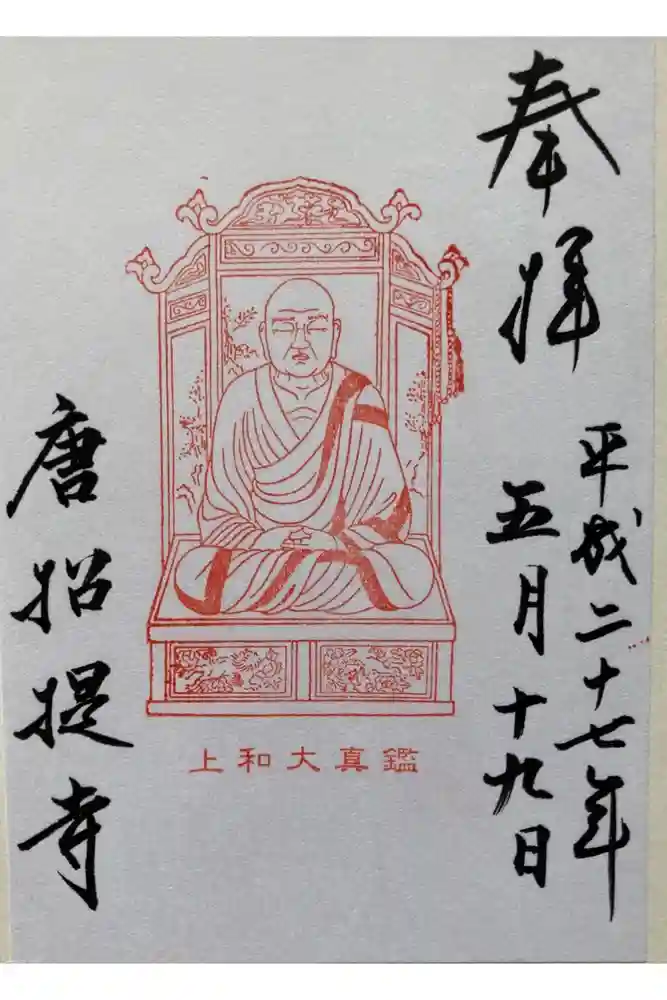 奉拝
平成二十七年
五月十九日
鑑真大和上
唐招提寺